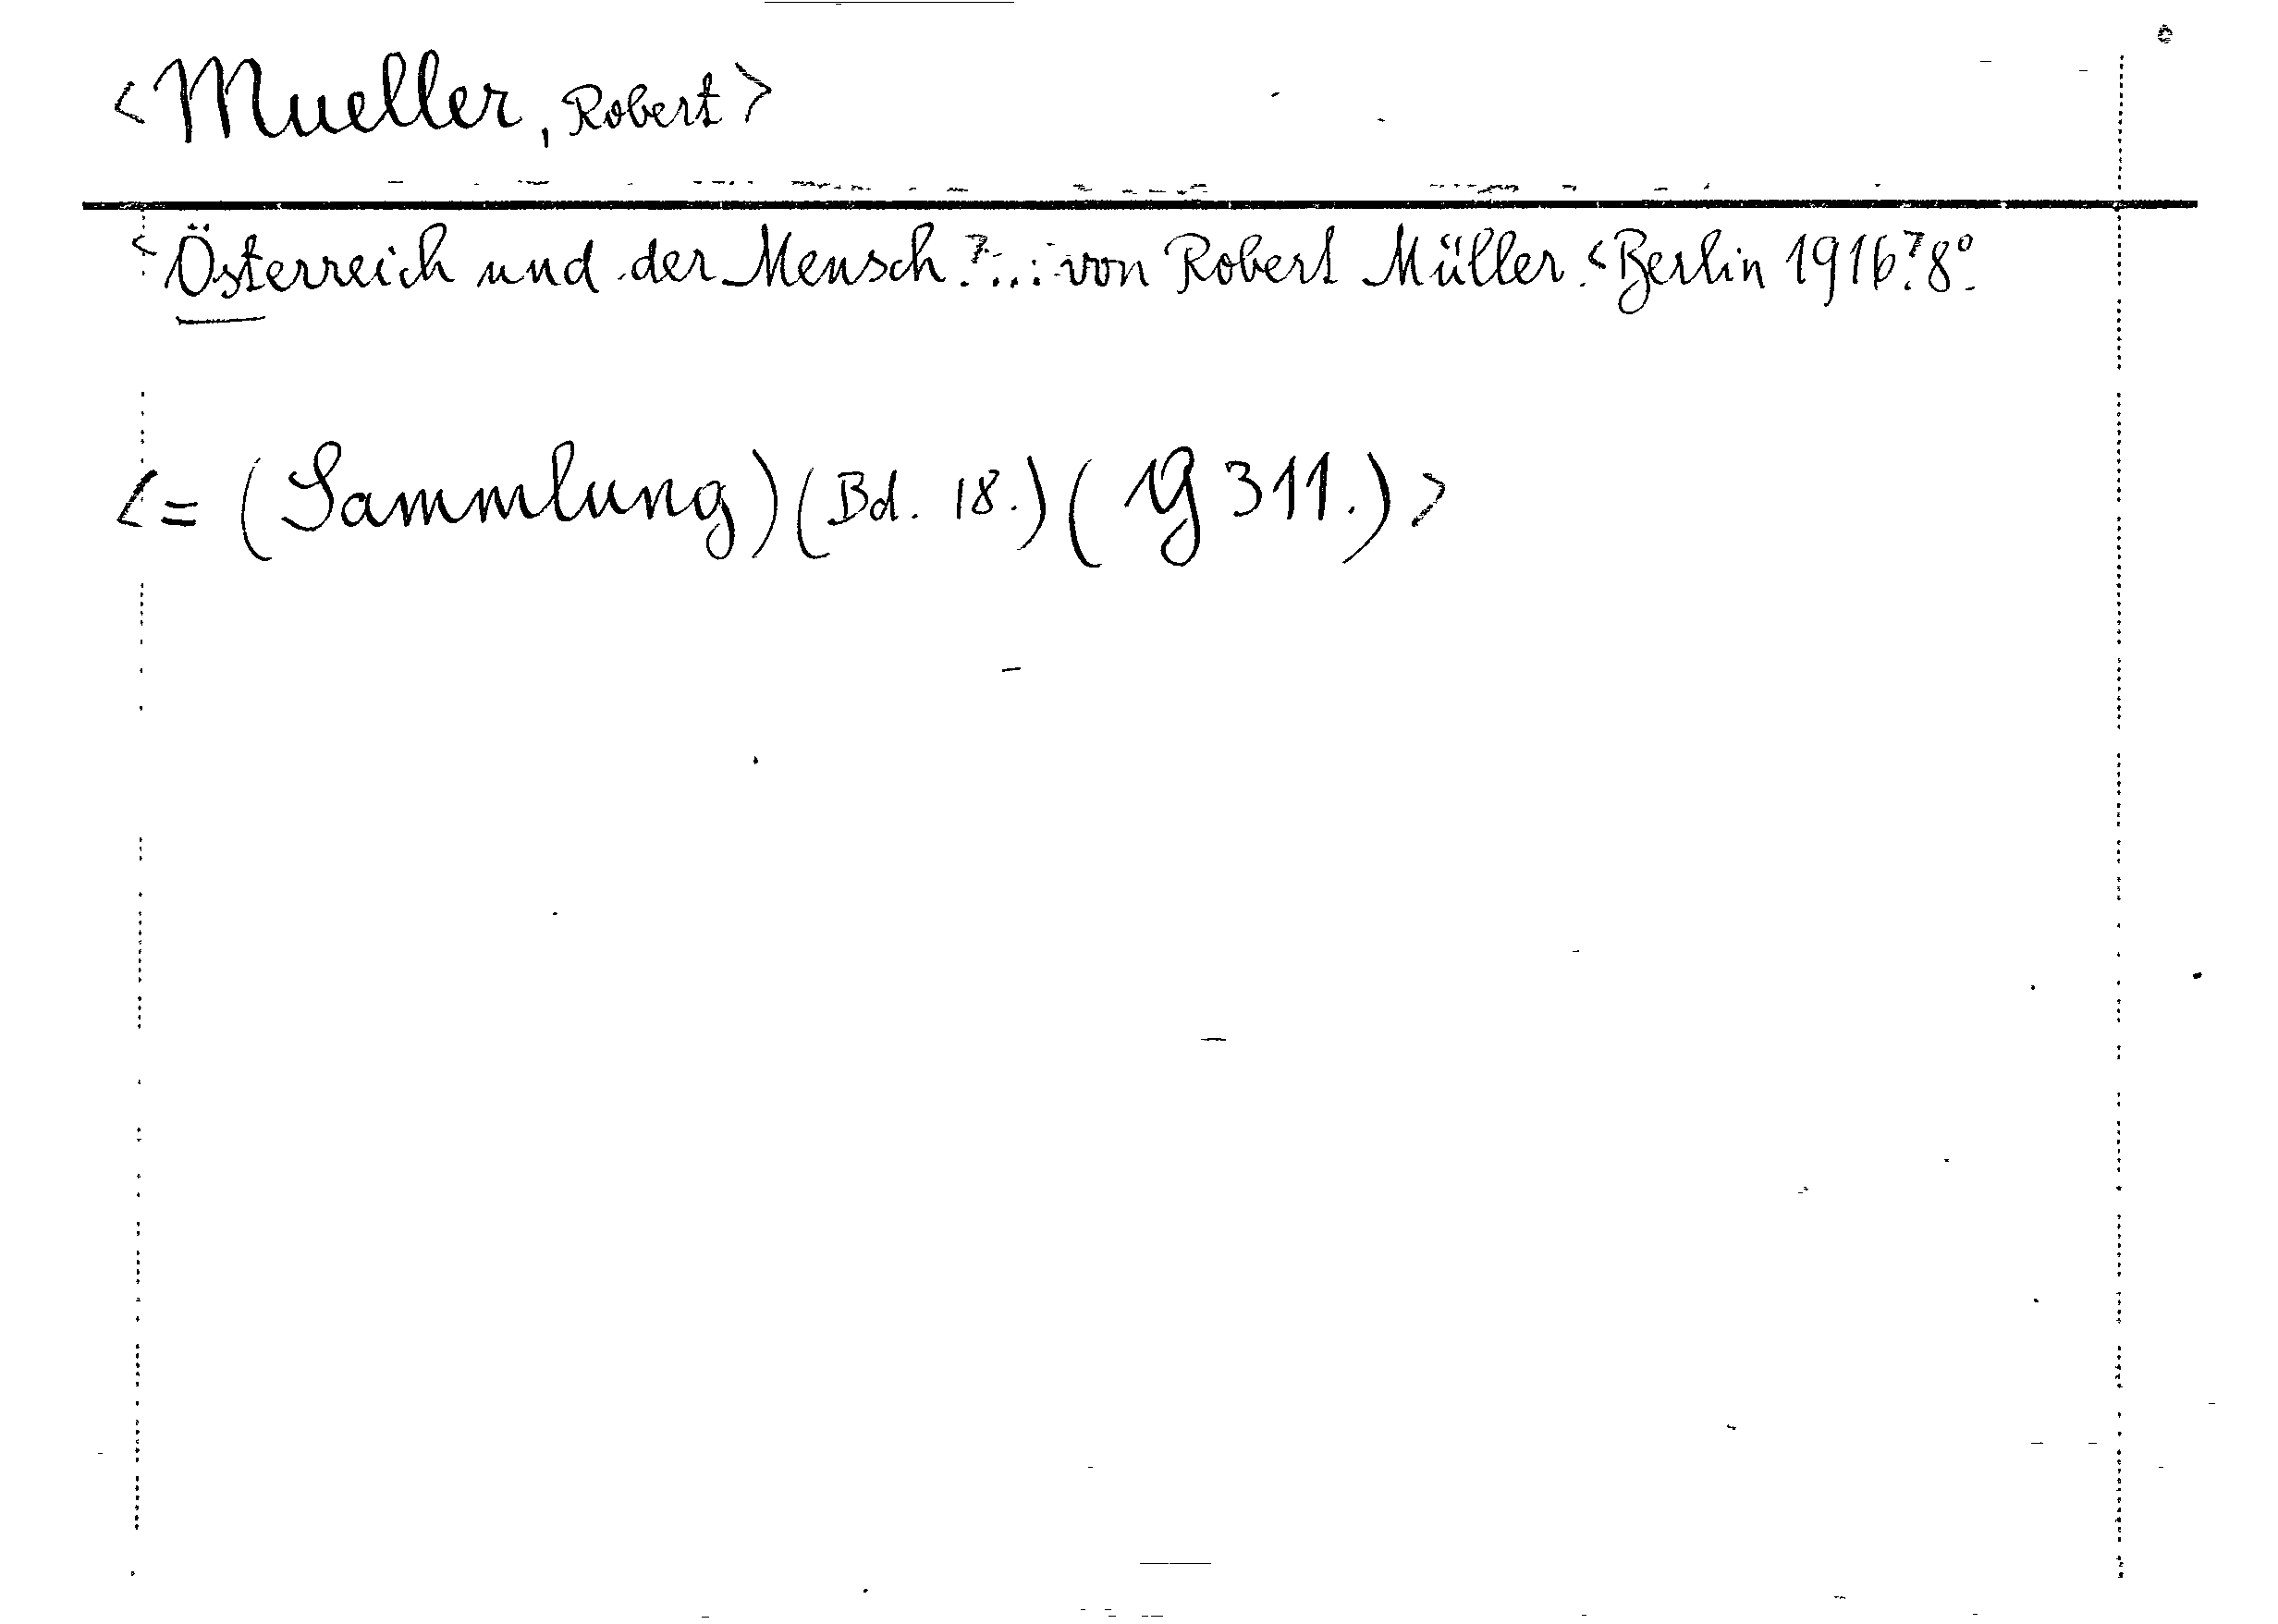 <Mueller, Robert>
<Österreich und der Mensch.>...: von Robert Müller. <Berlin 1916.> 8°.
<= (Sammlung) (Bd. 18.) (Yg 311.)>